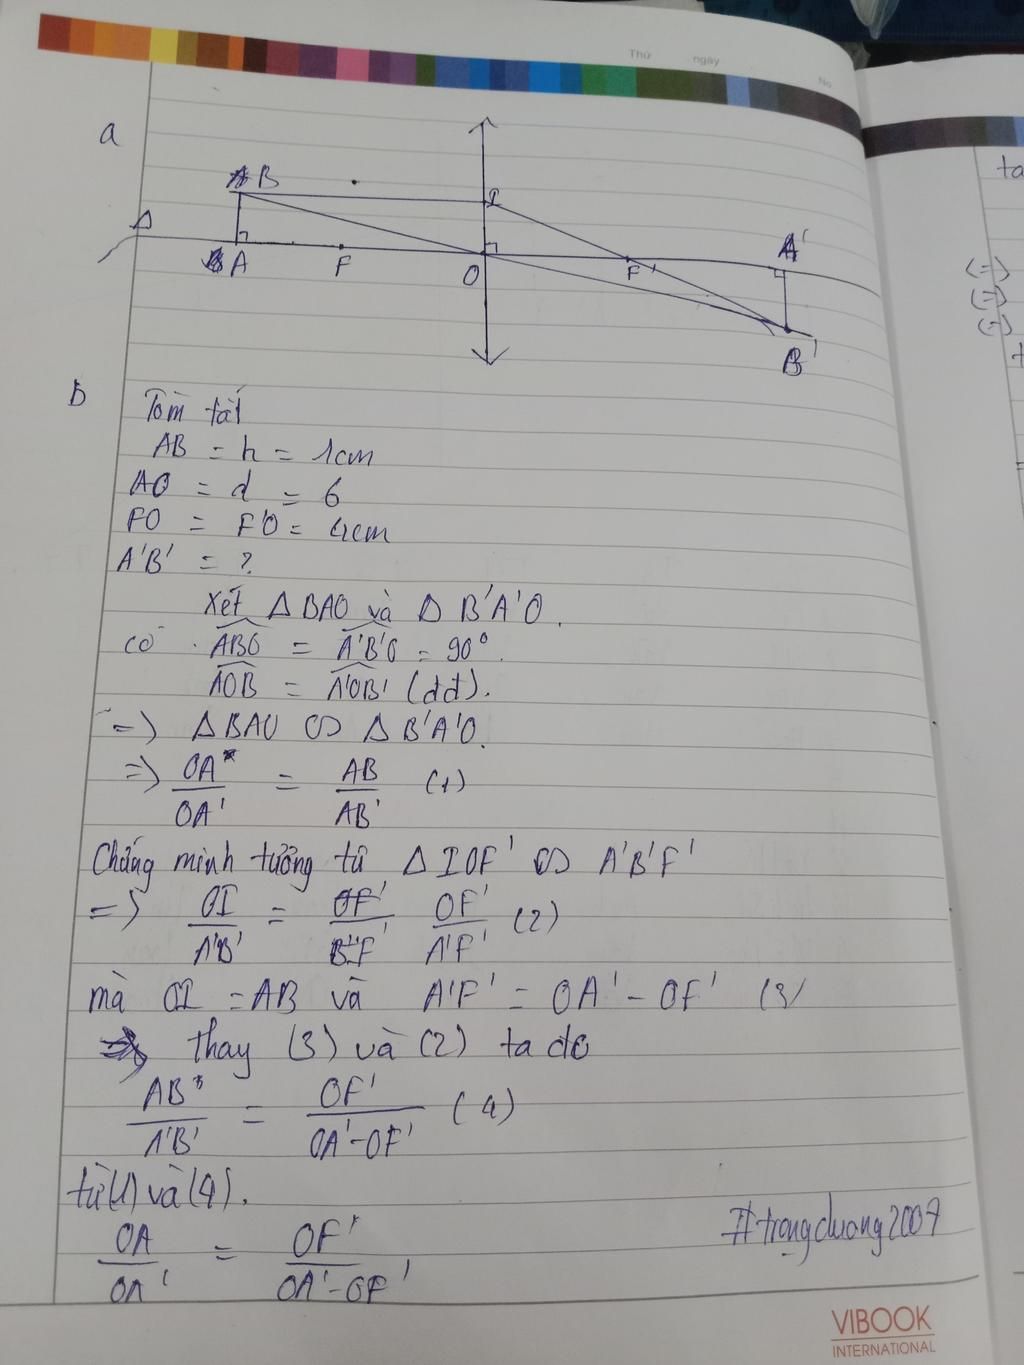 Thứ ngày
No
a
B I
Δ A F O F' A'
B'
b Tóm tắt
AB = h = 1cm
AO = d = 6
FO = F'O = 4cm
A'B' = ?
Xét Δ BAO và Δ B'A'O.
có ABO = A'B'O = 90°.
AOB = A'OB' (đđ).
=> Δ BAO ∽ Δ B'A'O.
=> OA/OA' = AB/AB' (1)
Chứng minh tương tự Δ IOF' ∽ A'B'F'
=> OI/A'B' = OF'/A'F' (2)
mà OI = AB và A'F' = OA' - OF' (3)
thay (3) và (2) ta đc
AB/A'B' = OF'/OA'-OF' (4)
từ (1) và (4).
OA/OA' = OF'/OA'-OF'
#trongduong2007
VIBOOK
INTERNATIONAL
ta
(=)
(=)
(=)